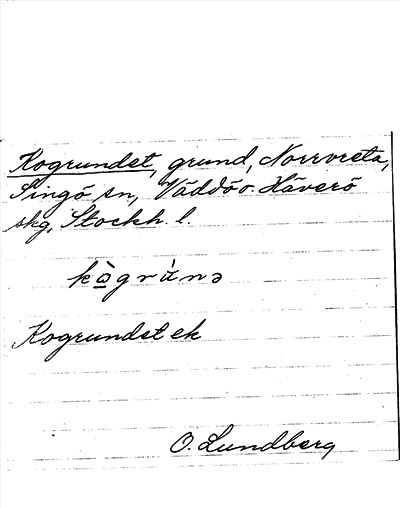 Kogrundet, grund, Norrvreta,
Singö sn, Väddö o. Häverö
skg, Stockh. l.
Kogrundet ek
O. Lundberg